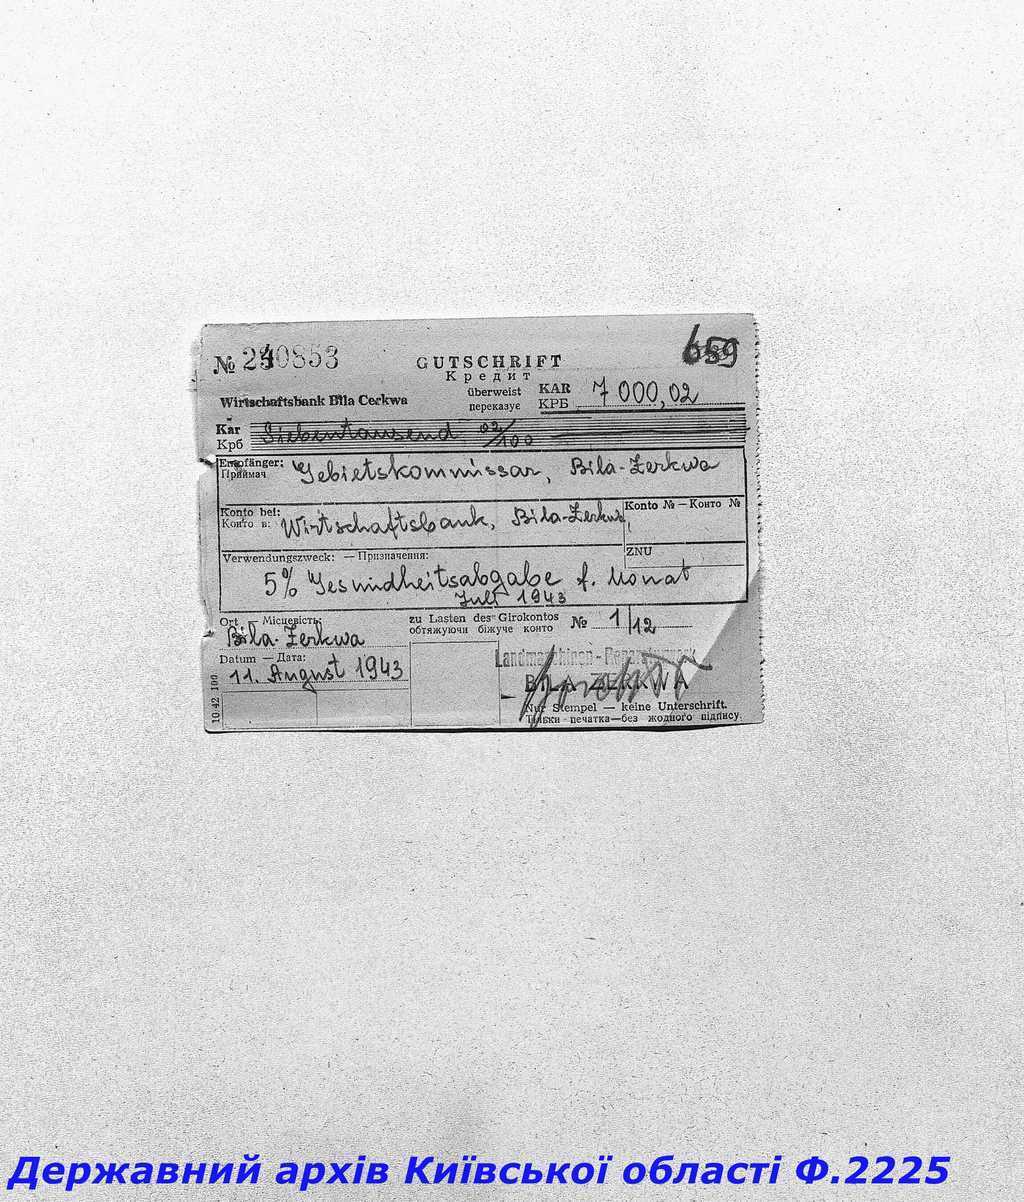 659
№ 240853
GUTSCHRIFT
Кредит
Wirtschaftsbank Bila Cerkwa
überweist
переказує
KAR
КРБ
7 000,02
Kar
Крб
Siebentausend 02/100
Empfänger:
Приймач
Gebietskommissar, Bila-Zerkwa
Konto bei:
Конто в:
Wirtschaftsbank, Bila-Zerkwa
Konto № — Конто №
ZNU
Verwendungszweck: — Призначення:
5% Gesundheitsabgabe f. Monat
Juli 1943
Ort — Місцевість:
Bila-Zerkwa
zu Lasten des Girokontos
обтяжуючи біжуче конто
№ 1/12
Datum — Дата:
11. August 1943
Landmaschinen-Reparaturwerk
BILA ZERKWA
Nur Stempel — keine Unterschrift.
Тільки печатка—без жодного підпису.
10.42 100
Державний архів Київської області Ф.2225